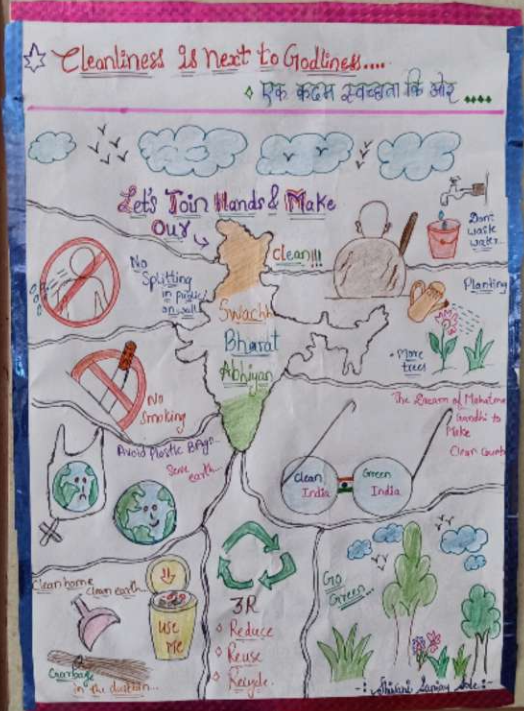 Cleanliness is next to Godliness....
एक कदम स्वच्छता कि ओर ....
Let's Join Hands & Make
Our
clean!!!
Don't
waste
water..
No
Splitting
in public/
on wall
Swachh
Bharat
Abhiyan
Planting
More
trees
No
Smoking
The Dream of Mahatma
Gandhi to
Make
Clean Count
Avoid Plastic Bags...
Save
earth...
Clean
India
Green
India
Clean home
clean earth..
USE
ME
Garbage
in the dustbin...
3R
Reduce
Reuse
Recycle.
Go
Green...
-: Shivani Sanjay :-